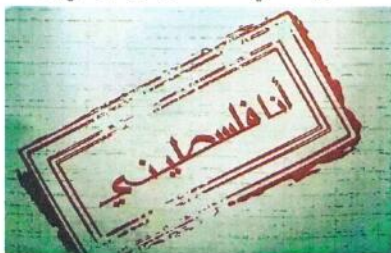 أنا فلسطيني